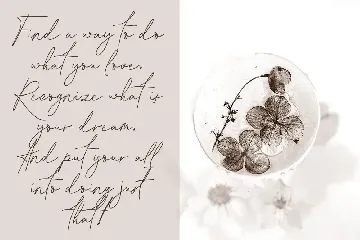 Find a way to do
what you love.
Recognize what is
your dream.
And put your all
into doing just
that!